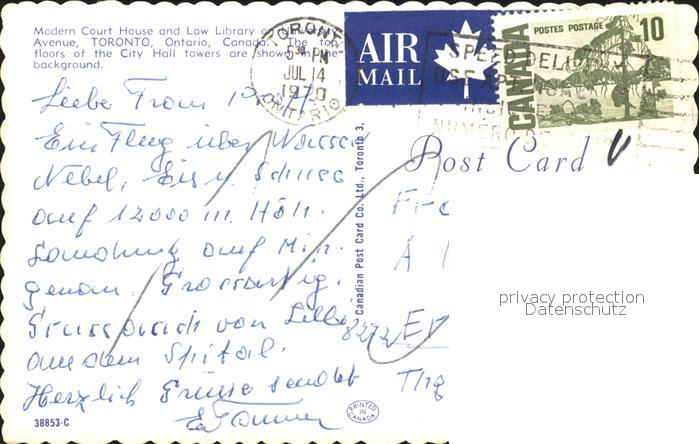 Modern Court House and Law Library on University
Avenue, TORONTO, Ontario, Canada. The top
floors of the City Hall towers are shown in the
background.
TORONTO
5 30 PM
JUL 14
1970
ONTARIO
AIR
MAIL
POSTES POSTAGE 10
CANADA
SPEED DELIVERY
USE APT. NUMBER
NUMÉRO
Post Card
Liebe Frau
Ein Flug über Wasser
Nebel, Eis u. Schnee
auf 12000 m. Höh.
Landung auf Min.
genau. Grossartig.
Gruss auch von
aus dem Spital.
Herzlich Grüsse sendet
8272 Er
Thg
Canadian Post Card Co. Ltd., Toronto 3,
PRINTED IN CANADA
38853-C
privacy protection
Datenschutz